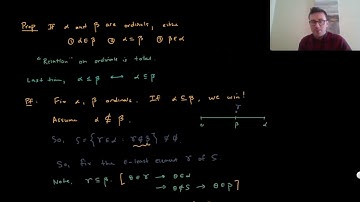 Prop If α and β are ordinals, either
① α∈β ② α=β ③ β∈α
"Relation" on ordinals is total.
Last time, α ≤ β ⟷ α ⊆ β
Pf: Fix α, β ordinals. If α ⊆ β, we win!
Assume α ⊈ β.
γ
β α
So, S = {γ∈α : γ∉β} ≠ ∅.
So, fix the ∈-least element γ of S.
Note, γ ⊆ β [θ∈γ → θ∈α
→ θ∉S → θ∈β]